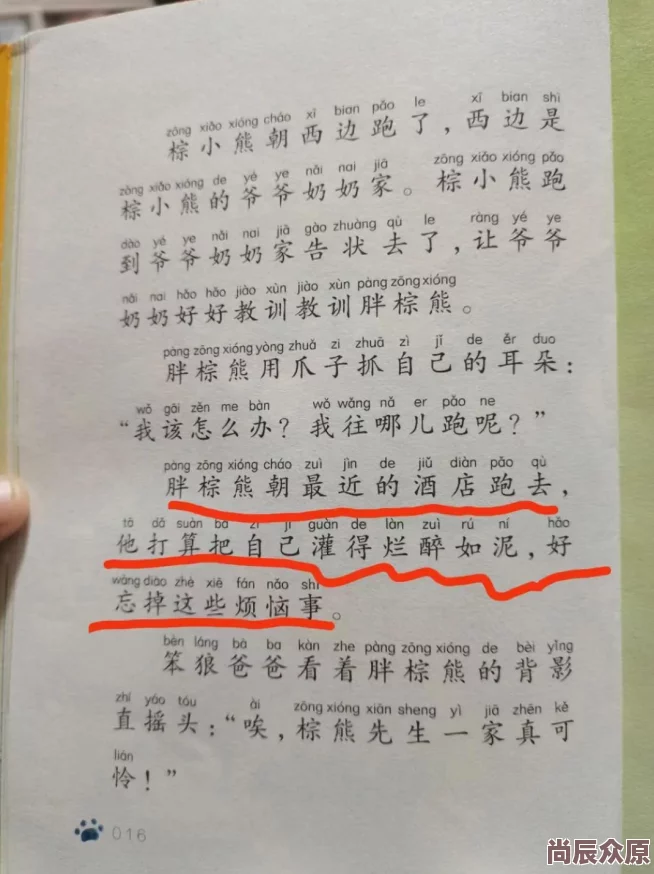 zōng xiǎo xióng cháo xī bian pǎo le xī bian shì
棕小熊朝西边跑了，西边是
zōng xiǎo xióng de yé ye nǎi nai jiā zōng xiǎo xióng pǎo
棕小熊的爷爷奶奶家。棕小熊跑
dào yé ye nǎi nai jiā gào zhuàng qù le ràng yé ye
到爷爷奶奶家告状去了，让爷爷
nǎi nai hǎo hǎo jiào xùn jiào xùn pàng zōng xióng
奶奶好好教训教训胖棕熊。
pàng zōng xióng yòng zhuǎ zi zhuā zì jǐ de ěr duo
胖棕熊用爪子抓自己的耳朵：
wǒ gāi zěn me bàn wǒ wǎng nǎ er pǎo ne
“我该怎么办？我往哪儿跑呢？”
pàng zōng xióng cháo zuì jìn de jiǔ diàn pǎo qù
胖棕熊朝最近的酒店跑去，
tā dǎ suàn bǎ zì jǐ guàn de làn zuì rú ní hǎo
他打算把自己灌得烂醉如泥，好
wàng diào zhè xiē fán nǎo shì
忘掉这些烦恼事。
bèn láng bà ba kàn zhe pàng zōng xióng de bèi yǐng
笨狼爸爸看着胖棕熊的背影
zhí yáo tóu ài zōng xióng xiān sheng yì jiā zhēn kě
直摇头：“唉，棕熊先生一家真可
lián
怜！”
016
尚辰众原